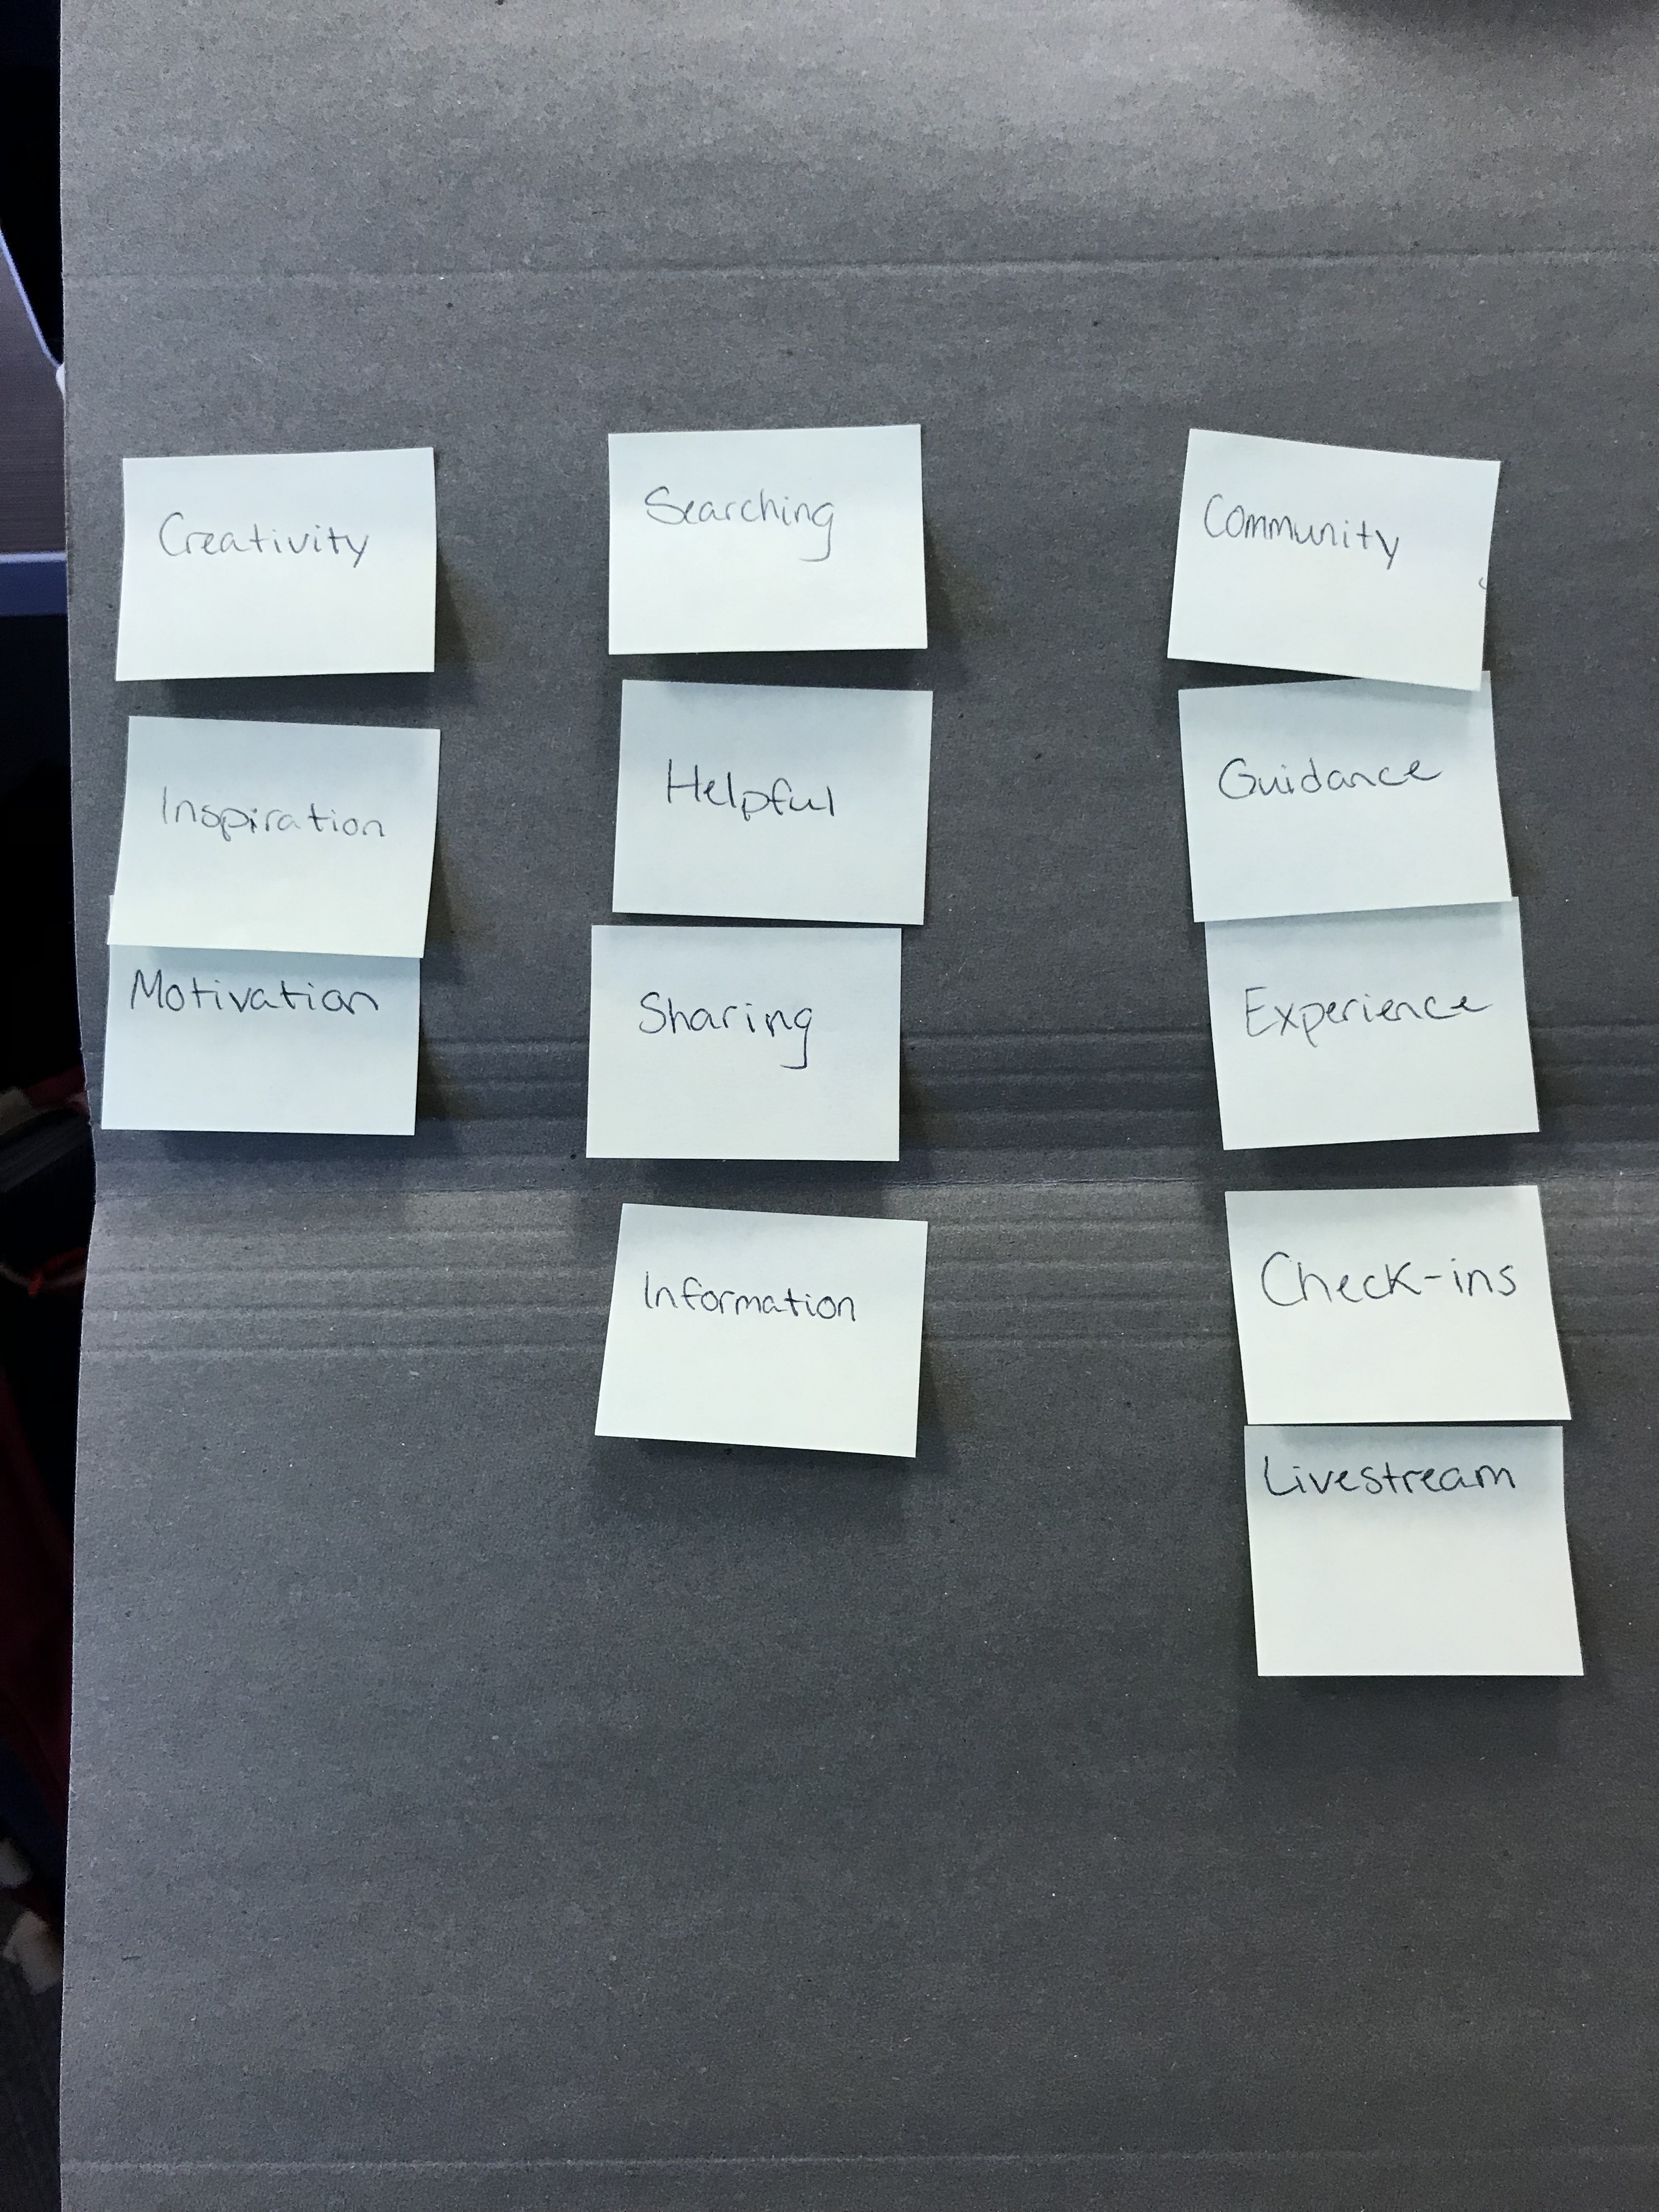 Creativity
Inspiration
Motivation
Searching
Helpful
Sharing
Information
Community
Guidance
Experience
Check-ins
Livestream